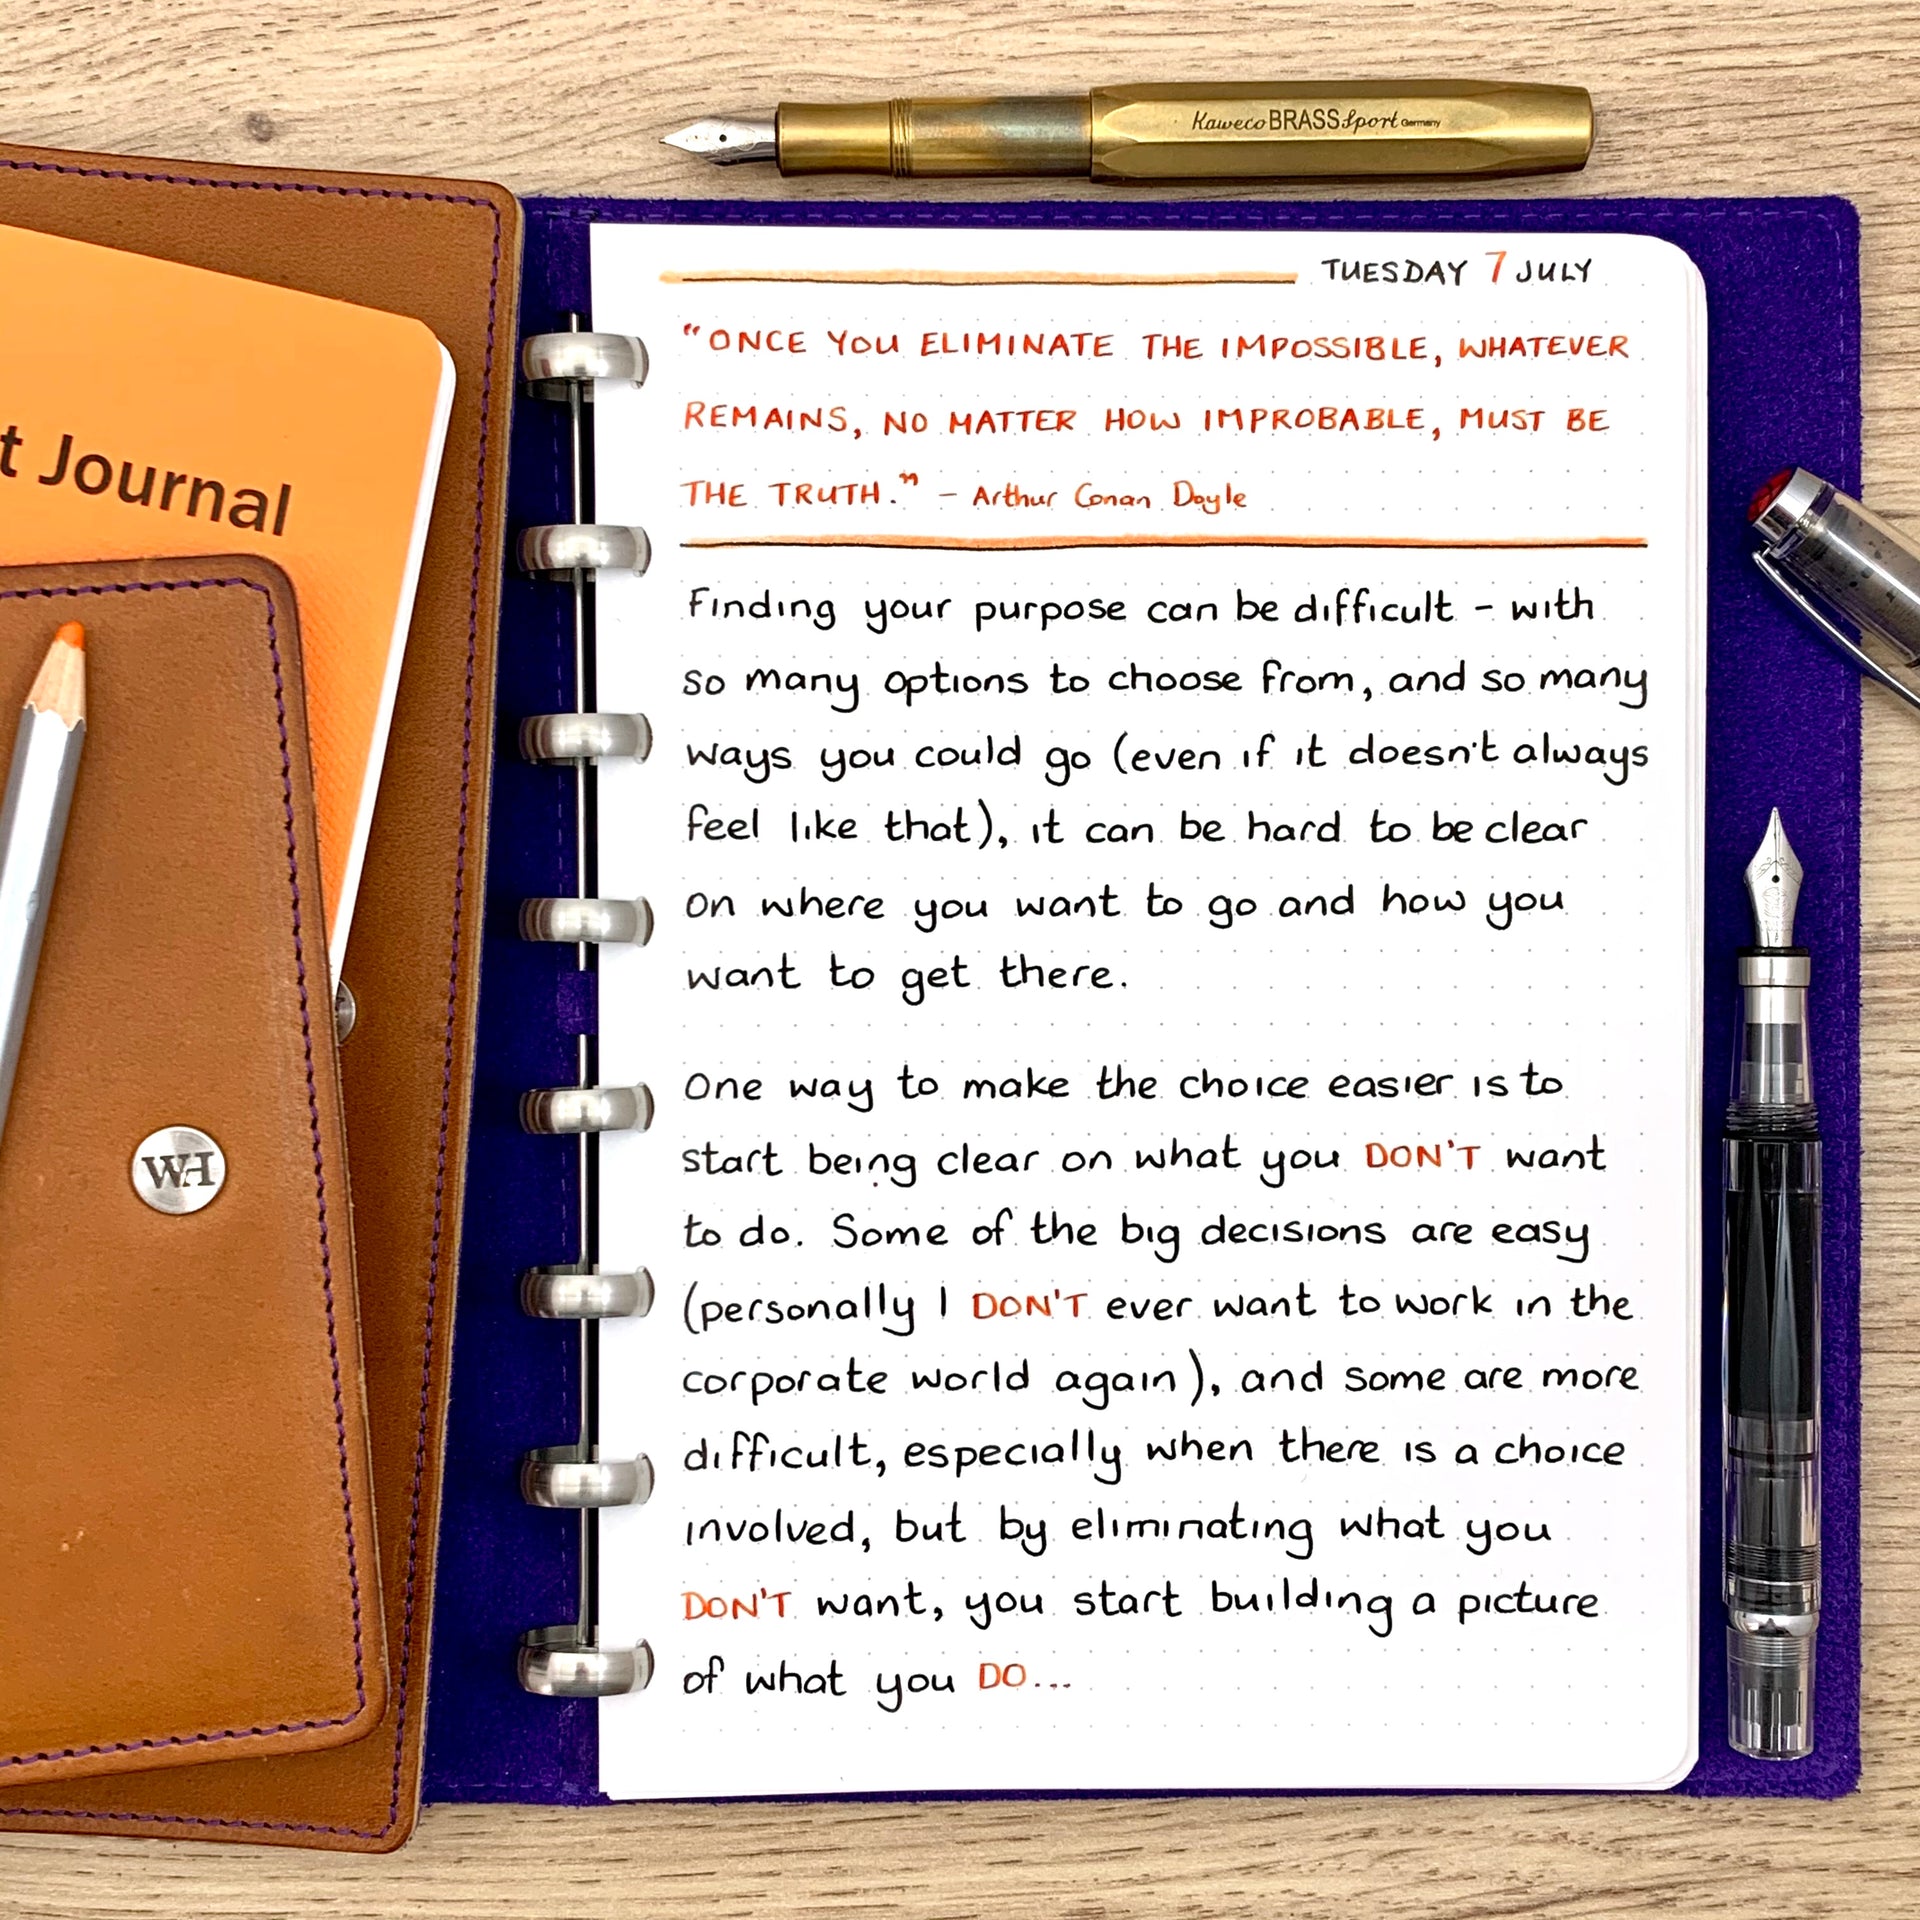 Kaweco BRASS Sport Germany
TUESDAY 7 JULY
"ONCE YOU ELIMINATE THE IMPOSSIBLE, WHATEVER
REMAINS, NO MATTER HOW IMPROBABLE, MUST BE
THE TRUTH." - Arthur Conan Doyle
Finding your purpose can be difficult - with
so many options to choose from, and so many
ways you could go (even if it doesn't always
feel like that), it can be hard to be clear
on where you want to go and how you
want to get there.
One way to make the choice easier is to
start being clear on what you DON'T want
to do. Some of the big decisions are easy
(personally I DON'T ever want to work in the
corporate world again), and some are more
difficult, especially when there is a choice
involved, but by eliminating what you
DON'T want, you start building a picture
of what you DO...
t Journal
WH